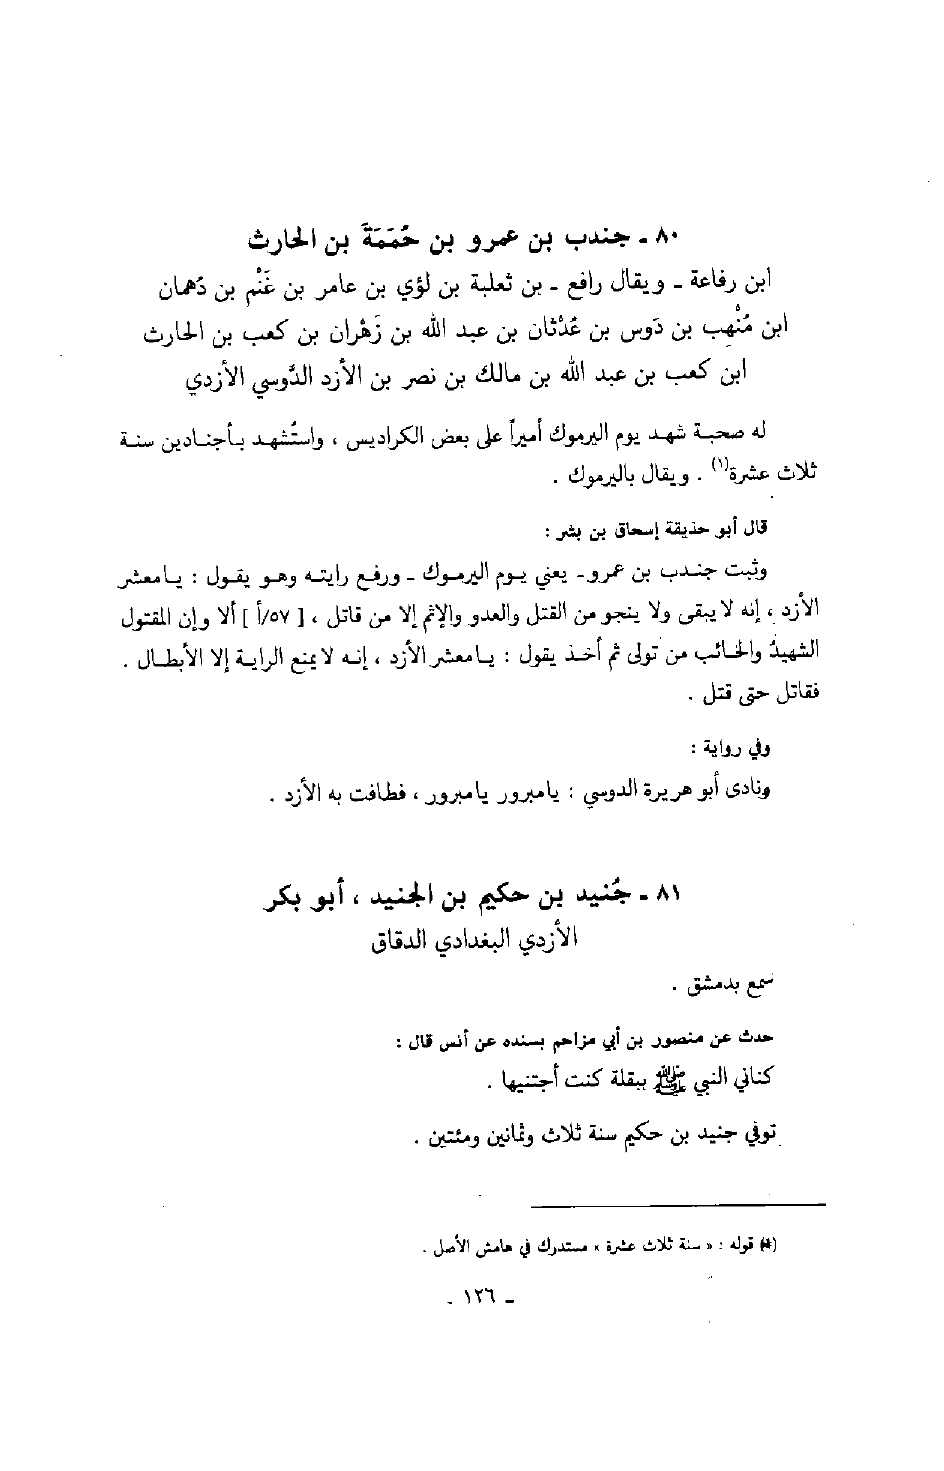 ٨٠ - جندب بن عمرو بن حُمَمَةَ بن الحارث
ابن رفاعة - ويقال رافع - بن ثعلبة بن لؤي بن عامر بن غَنْم بن دُهمان
ابن مُنْهِب بن دَوس بن عُدْثان بن عبد الله بن زَهْران بن كعب بن الحارث
ابن كعب بن عبد الله بن مالك بن نصر بن الأزد الدَّوسي الأزدي
له صحبة شهد يوم اليرموك أميراً على بعض الكراديس ، واستُشهد بأجنادين سنة
ثلاث عشرة(١) . ويقال باليرموك .
قال أبو حذيفة إسحاق بن بشر :
وثبت جندب بن عمرو - يعني يوم اليرموك - ورفع رايته وهو يقول : يامعشر
الأزد ، إنه لا يبقى ولا ينجو من القتل والعدو والإثم إلا من قاتل ، [ ٥٧/أ ] ألا وإن المقتول
الشهيدُ والخائب من تولى ثم أخذ يقول : يامعشر الأزد ، إنه لا يمنع الراية إلا الأبطال .
فقاتل حتى قتل .
وفي رواية :
ونادى أبو هريرة الدوسي : يامبرور يامبرور ، فطافت به الأزد .
٨١ - جُنيد بن حكيم بن الجنيد ، أبو بكر
الأزدي البغدادي الدقاق
سمع بدمشق .
حدث عن منصور بن أبي مزاحم بسنده عن أنس قال :
كناني النبي ﷺ ببقلة كنت أجتنيها .
توفي جنيد بن حكيم سنة ثلاث وثمانين ومئتين .
(*) قوله : « سنة ثلاث عشرة » مستدرك في هامش الأصل .
- ١٢٦ -